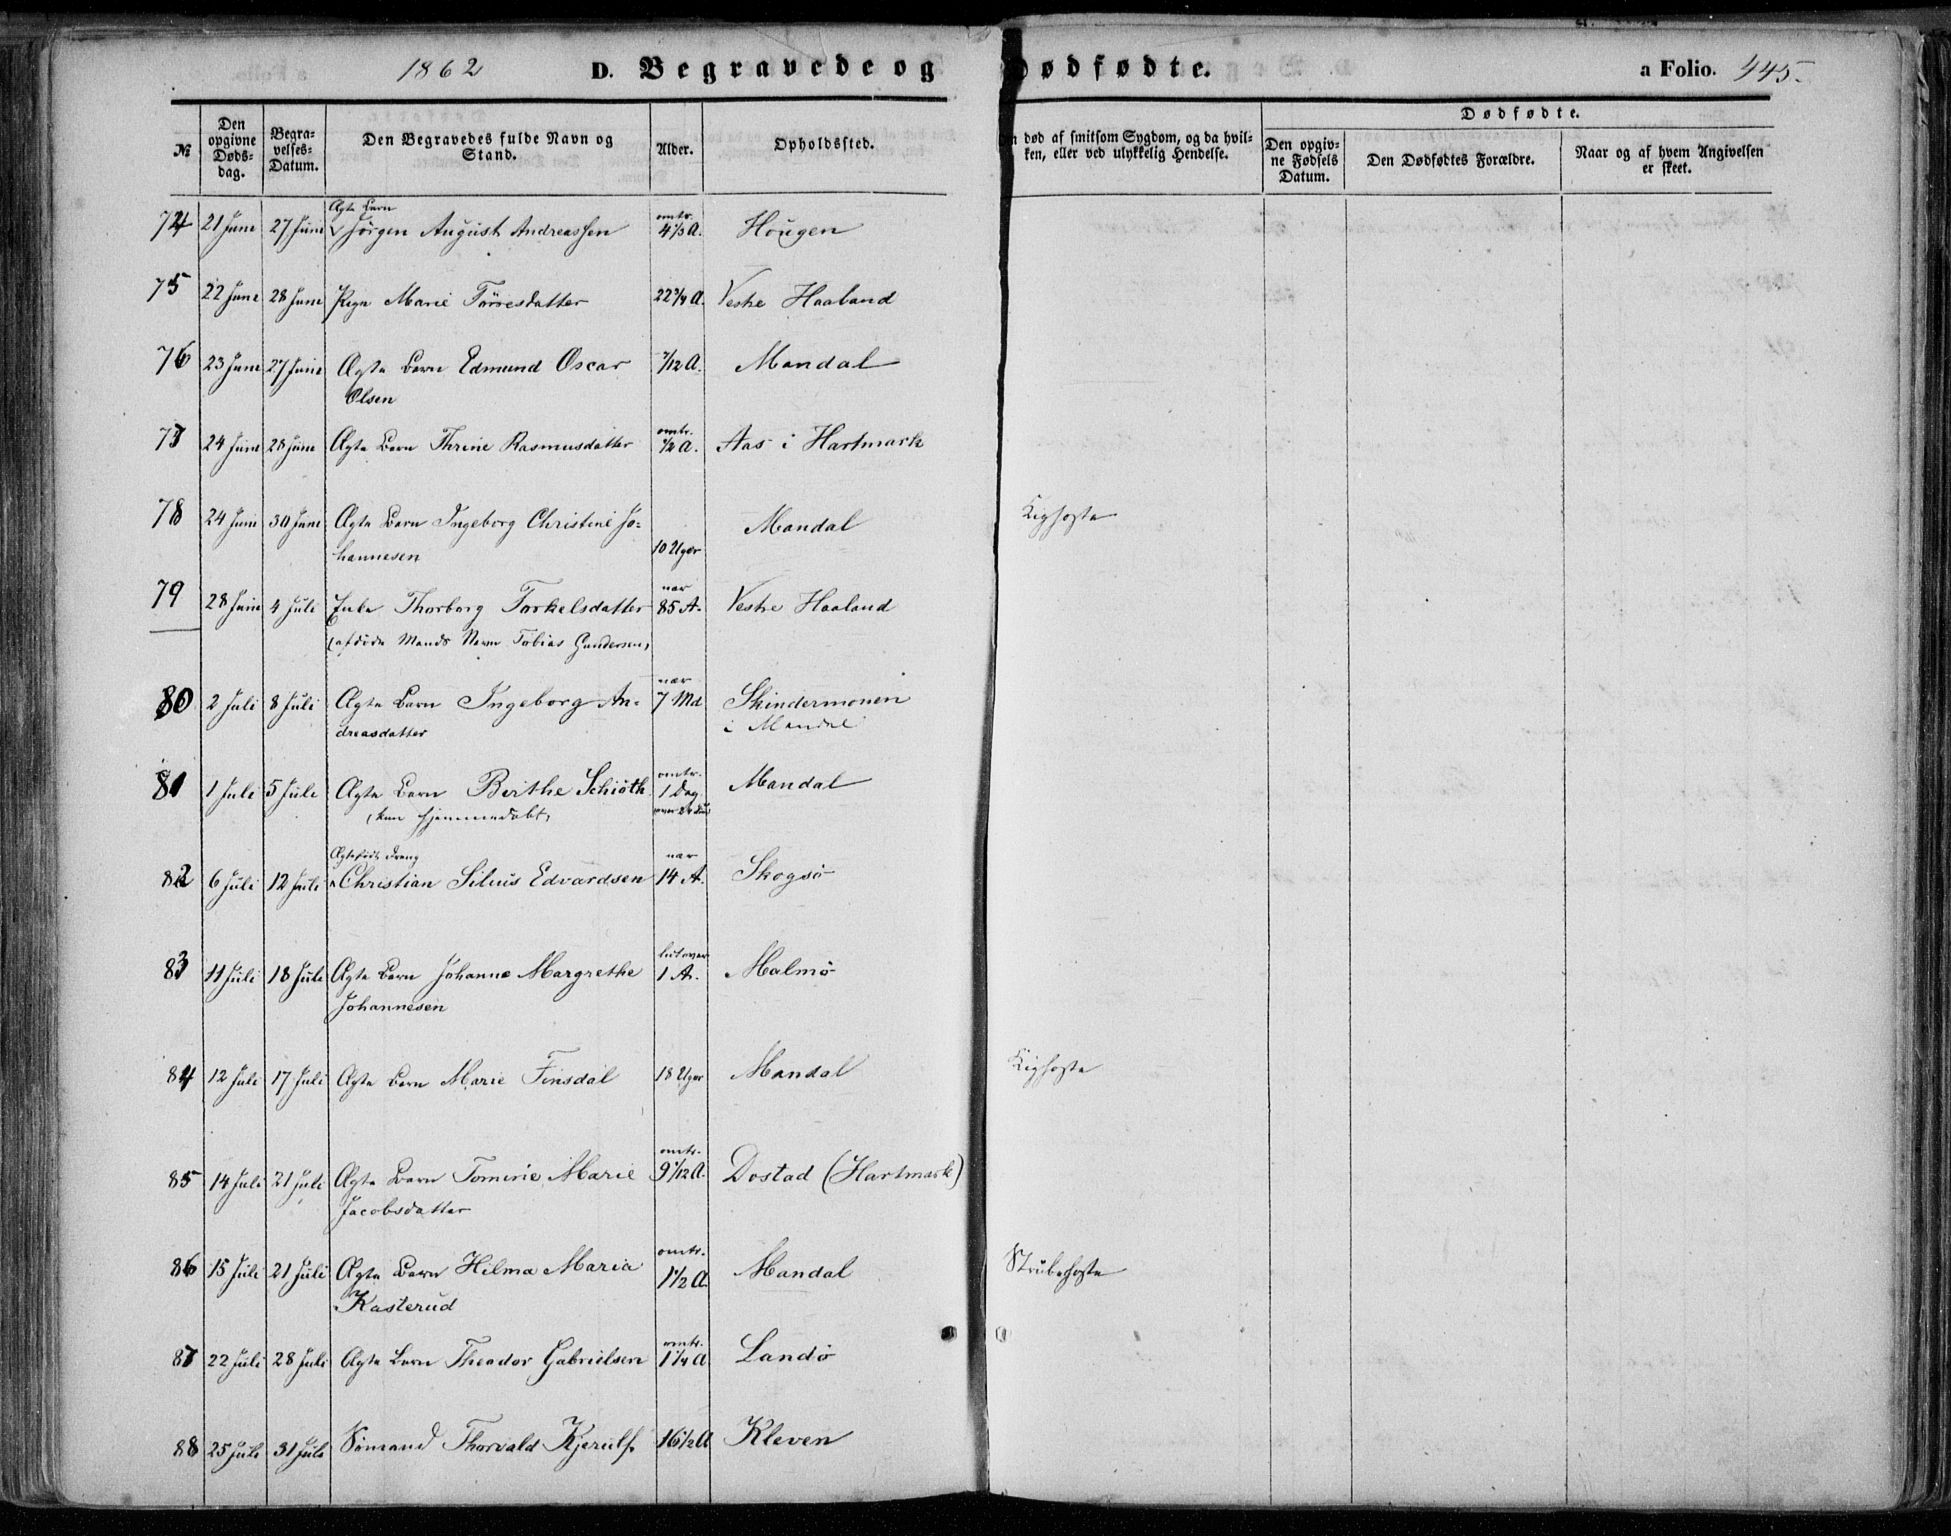 1862 D. Begravede og Dødfødte. a Folio. 445.
№ Den opgivne Døds-dag. Begra-velses-Datum. Den Begravedes fulde Navn og Stand. Alder. Opholdssted. død af smitsom Sygdom, og da hvil-ken, eller ved ulykkelig Hendelse. Dødfødte. Den opgiv-ne Fødsels Datum. Den Dødfødtes Forældre. Naar og af hvem Angivelsen er skeet.
Ægte Barn omtr.
74 21 Juni 27 Juni Jörgen August Andreassen 4 1/3 A. Hougen
75 22 Juni 28 Juni Pige Marie Törresdatter 22 3/4 A. Vestre Haaland
76 23 Juni 27 Juni Ægte Barn Edmund Oscar 7/12 A. Mandal
Olsen
omtr.
77 24 Juni 28 Juni Ægte Barn Thrine Rasmusdatter 1/2 A. Aas i Hartmark
78 24 Juni 30 Juni Ægte Barn Ingeborg Christine Jo- Mandal Kighoste
hannesen 10 Uger
nær
79 28 Juni 4 Juli Enke Thorborg Torkelsdatter 85 A. Vestre Haaland
(afdöde Mands Navn Tobias Gundersen)
nær
80 2 Juli 8 Juli Ægte Barn Ingeborg An- 7 Md Skindermonen
dreasdatter i Mandal
omtr.
81 1 Juli 5 Juli Ægte Barn Birthe Schiöth 1 Dag Mandal
(kun hjemmedöbt)
Ægtefødt Dreng nær
82 6 Juli 12 Juli Christian Silius Edvardsen 14 A. Skogsø
lidt over
83 11 Juli 18 Juli Ægte Barn Johanne Margrethe 1 A. Malmø
Johannesen
84 12 Juli 17 Juli Ægte Barn Marie Finsdal 18 Uger Mandal Kighoste
omtr.
85 14 Juli 21 Juli Ægte Barn Tomine Marie 9 1/12 A. Dostad (Hartmark)
Jacobsdatter
omtr.
86 15 Juli 21 Juli Ægte Barn Hilma Maria 1 1/2 A. Mandal Strubehoste
Kasterud
omtr.
87 22 Juli 28 Juli Ægte Barn Theodor Gabrielsen 1 1/4 A Landø
88 25 Juli 31 Juli Sömand Thorvald Kjerulf. 16 1/2 A Kleven